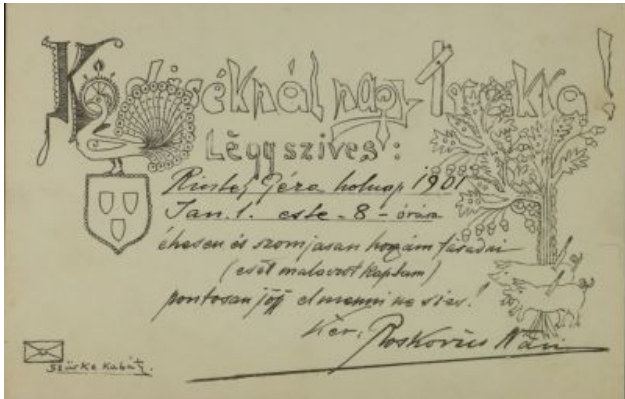 nagy Trakta!
Légy szives:
Géza holnap 1901
Jan. 1. este - 8 - órára
éhesen és szomjasan hozám fáradni
malaczot kaptam)
pontosan jőjj elmenni ne siess!
Kér: Roskovics
Szürke kabát.